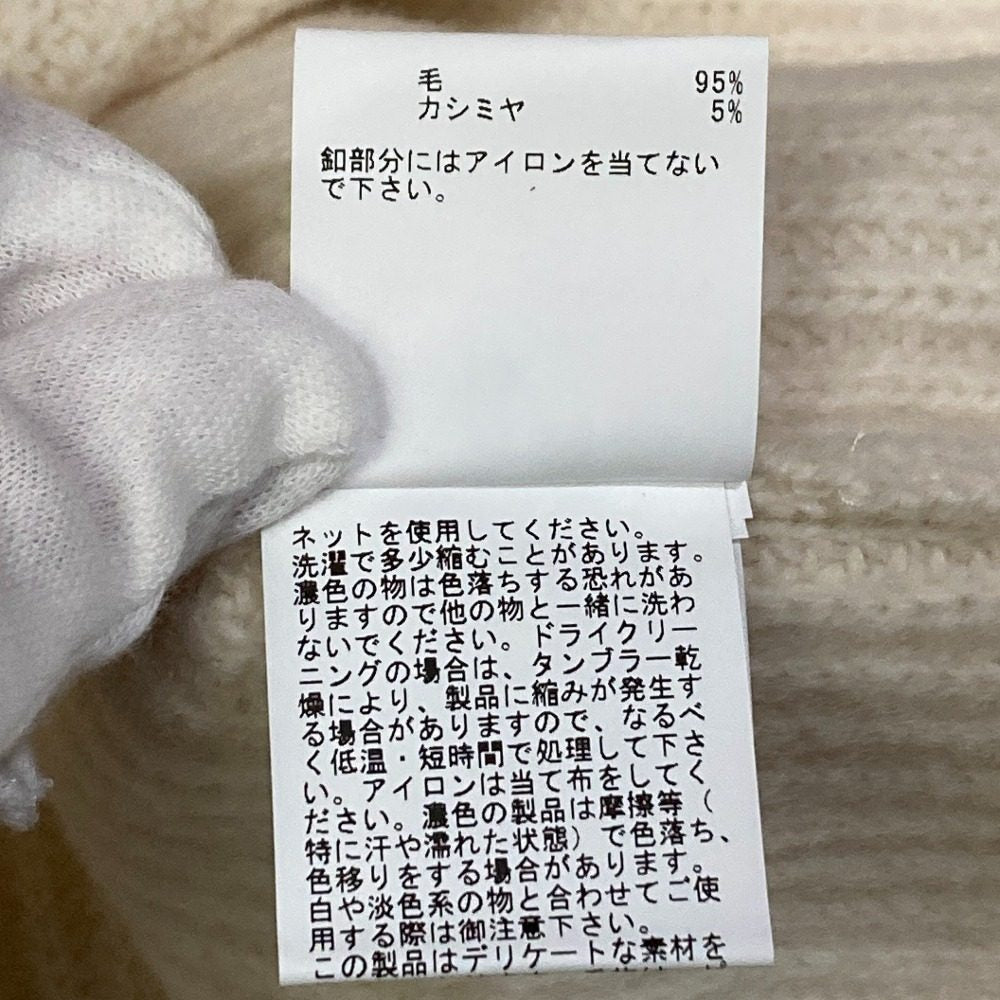 毛 95%
カシミヤ 5%
釦部分にはアイロンを当てない
で下さい。
ネットを使用してください。
洗濯で多少縮むことがあります。
濃色の物は色落ちする恐れがあ
りますので他の物と一緒に洗わ
ないでください。ドライクリー
ニングの場合は、タンブラー乾
燥により、製品に縮みが発生す
る場合がありますので、なるべ
く低温・短時間で処理して下さ
い。アイロンは当て布をしてく
ださい。濃色の製品は摩擦等（
特に汗や濡れた状態）で色落ち、
色移りをする場合があります。
白や淡色系の物と合わせてご使
用する際は御注意下さい。
この製品はデリケートな素材を